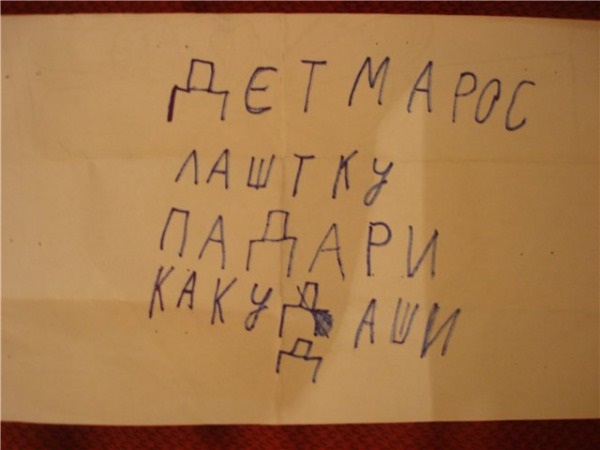 ДЕТМАРОС
ЛАШТКУ
ПАДАРИ
КАКУДАШИ